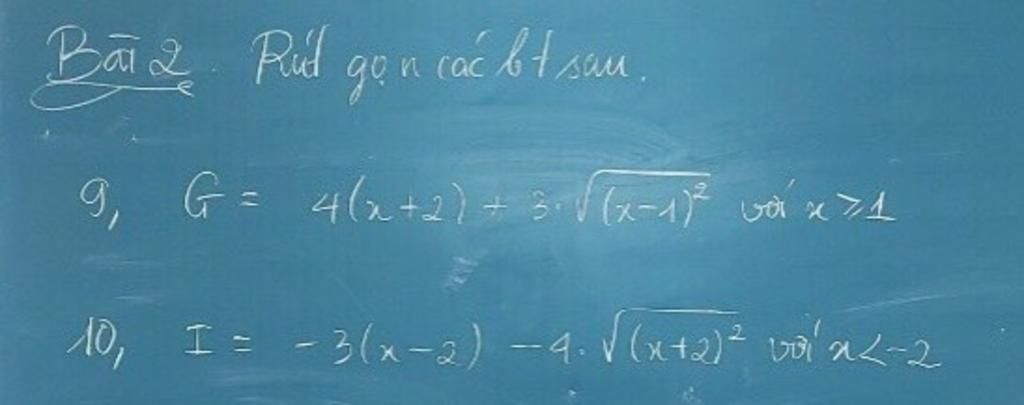 Bài 2. Rút gọn các bt sau.
9, G = 4(x+2) + 3.√(x-1)² với x ≥ 1
10, I = -3(x-2) -4.√(x+2)² với x < -2